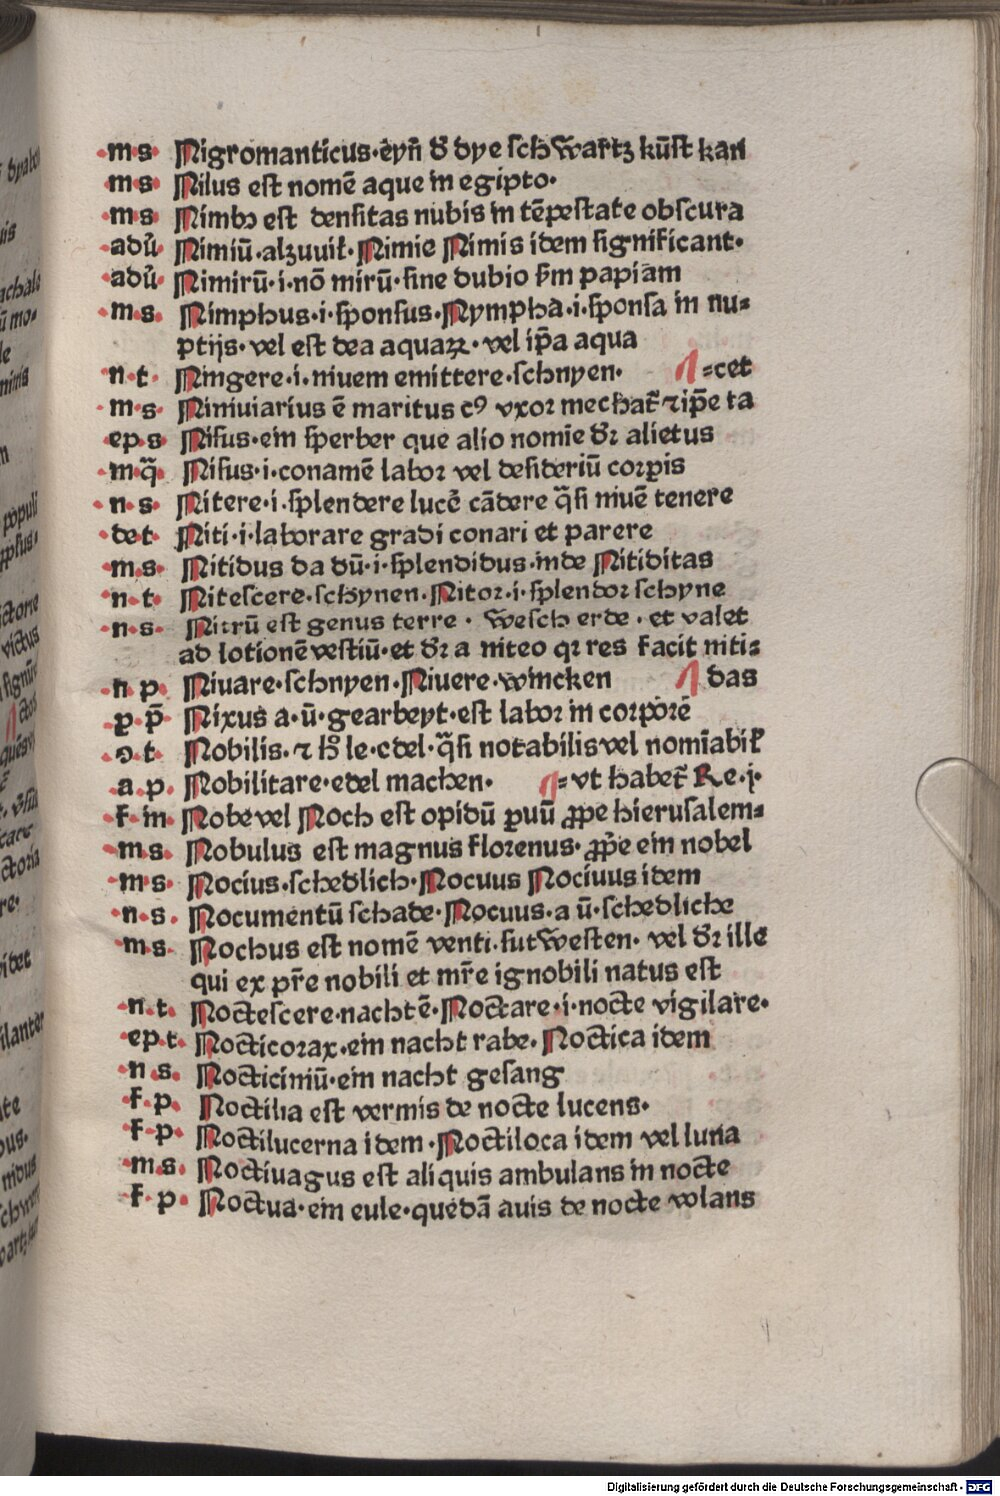 ·m·s· Nigromanticus·eyn̄ d̕ dye schwartz kūst kan
m·s· Nilus est nomē aque in egipto·
·m·s· Nimbꝫ est densitas nubis in tēpestate obscura
·adū· Nimiū·alzuuil·Nimie Nimis idem significant·
·adū· Nimirū·i·nō mirū·sine dubio s̄m papiam
·m·s· Nimphus·i·sponsus·Nympha·i·sponsa in nu⸗
ptijs·vel est dea aquaꝝ·vel ip̄a aqua
·n·t· Ningere·i·niuem emittere·schnyen· ⸗cet
·m·s· Niniuiarius ē maritus cꝰ vxor mechat̄ ⁊ip̄e ta
·ep·s Nisus·ein sperber que alio nomīe dr̄ alietus
·m·q̄· Nisus·i·conamē labor vel desideriū corꝑis
·n·s· Nitere·i·splendere lucē cādere q̄si niuē tenere
·de·t· Niti·i·laborare gradi conari et parere
·m·s· Nitidus da dū·i·splendidus·inde Nitiditas
·n·t· Nitescere·schynen·Nitor·i·splendor schyne
·n·s· Nitrū est genus terre· Wesch erde·et valet
ad lotionē vestiū·et dr̄ a niteo qr res facit niti⸗
·n·p· Niuare·schnyen·Niuere·wincken das
·ꝑ·p̄· Nixus a·ū·gearbeyt·est labor in corpore
·ɔ·t· Nobilis·⁊ h̄ le·edel·q̄si notabilis vel nomīabil̕
·a·p· Nobilitare·edel machen· ⸗vt habet̄ Re·j·
·f·m· Nobe vel Noch est opidū ꝑuū ꝓpe hierusalem⸗
·m·s· Nobulus est magnus florenus·ꝓp̄e ein nobel
·m·s· Nocius·schedlich·Nocuus Nociuus idem
·n·s· Nocumentū schade·Nocuus·a ū·schedliche
·m·s· Nochus est nomē venti·sutwesten·vel dr̄ ille
qui ex pr̄e nobili et mr̄e ignobili natus est
·n·t· Noctescere·nachtē·Noctare·i·nocte vigilare·
·ep·t· Nocticorax·ein nacht rabe·Noctica idem
·n·s· Nocticiniū·ein nacht gesang
·f·p· Noctilia est vermis de nocte lucens·
·f·p· Noctilucerna idem·Noctiloca idem vel luna
·m·s· Noctiuagus est aliquis ambulans in nocte
·f·p· Noctua·ein eule·quedā auis de nocte volans
Digitalisierung gefördert durch die Deutsche Forschungsgemeinschaft - DFG